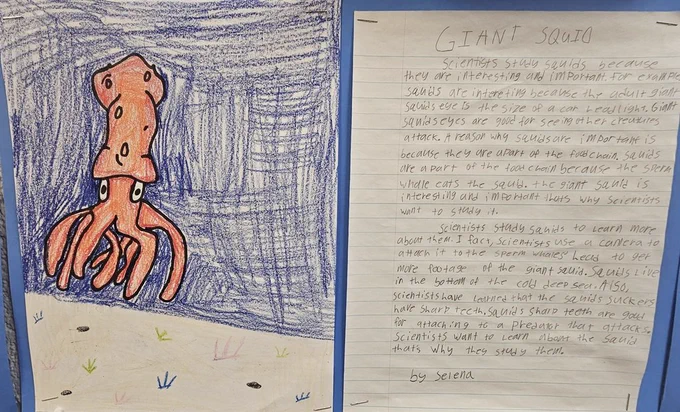 GIANT SQUID
Scientists study squids because
they are interesting and important. For example
squids are interesting because the adult giant
squids eye is the size of a car headlight. Giant
squids eyes are good for seeing other creatures
attack. A reason why squids are important is
because they are apart of the foodchain. Squids
are a part of the foodchain because the sperm
whale eats the squid. the giant squid is
interesting and important thats why scientists
want to study it.
Scientists study squids to learn more
about them. I fact, scientists use a camera to
attach it to the sperm whales head to get
more footage of the giant squid. Squids live
in the bottom of the cold deep sea. Also,
scientists have learned that the squids suckers
have sharp teeth. Squids sharp teeth are good
for attaching to a predator that attacks.
Scientists want to learn about the squid
thats why they study them.
by Selena